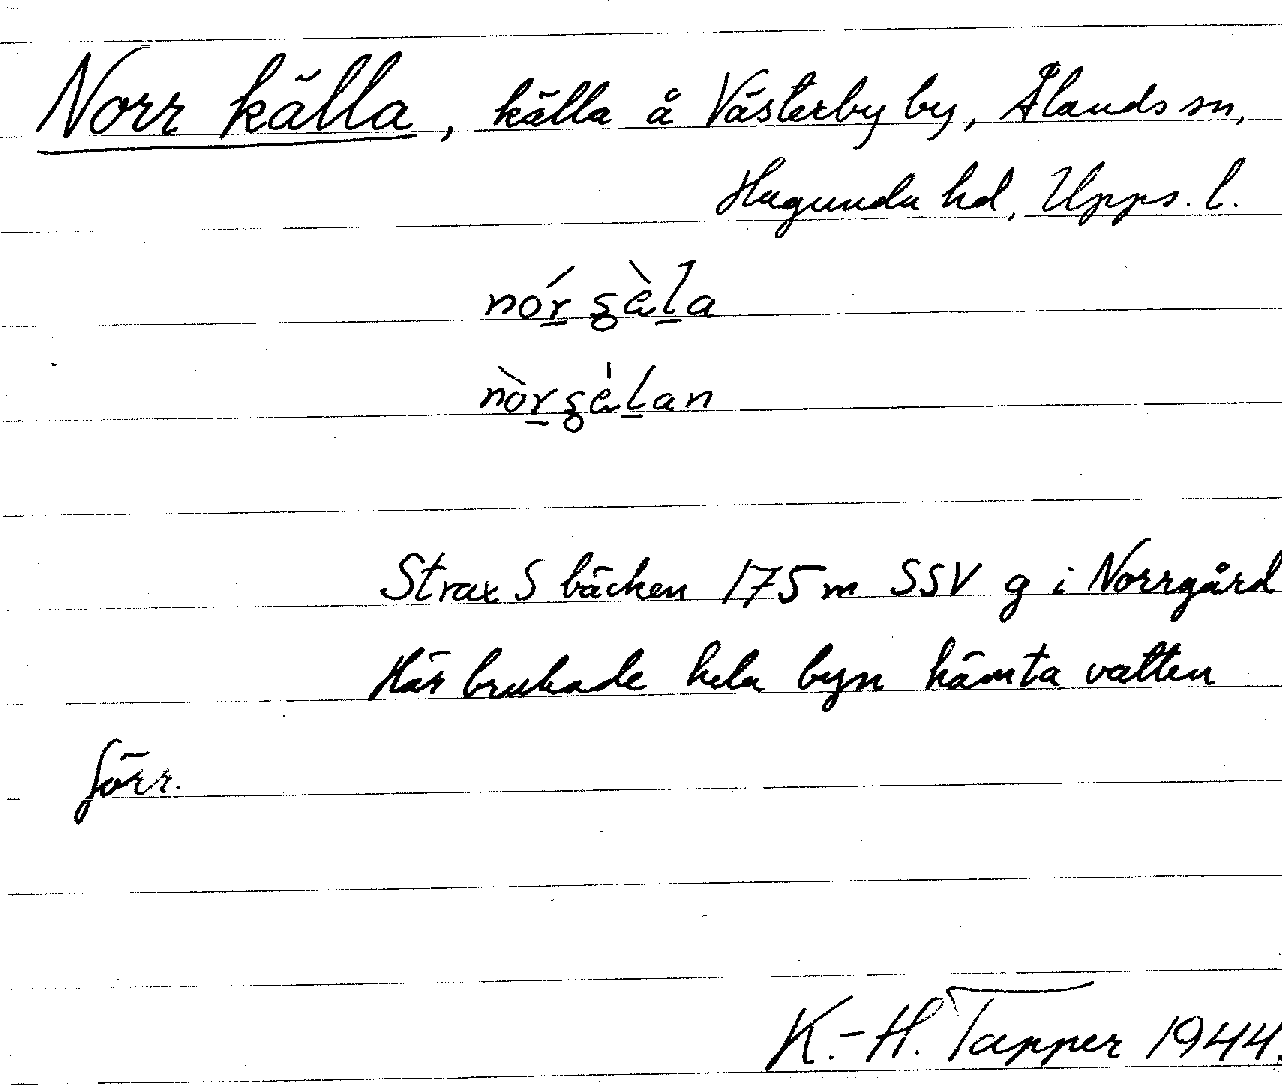 Norr källa, källa å Västerby by, Ålands sn,
Hagunda hd, Upps. l.
Strax S bäcken 175 m SSV g i Norrgård
Här brukade hela byn hämta vatten
förr.
K.-H. Tapper 1944.